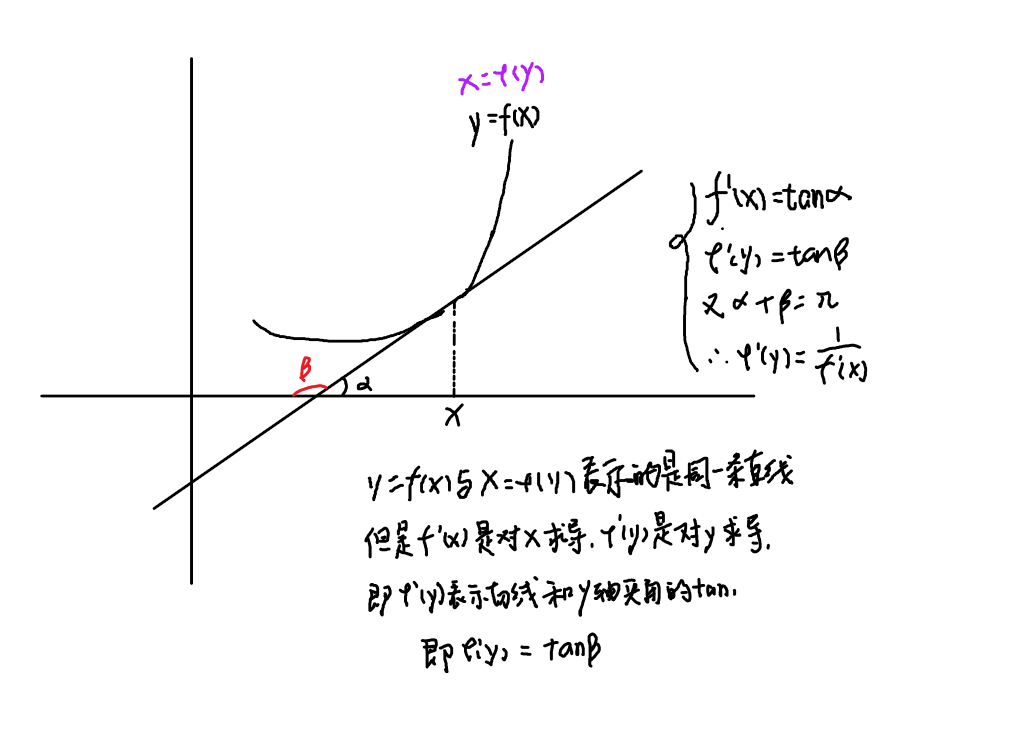 x=φ(y)
y=f(x)
f'(x)=tanα
φ'(y)=tanβ
又 α+β=π
∴ φ'(y)=1/f'(x)
β
α
x
y=f(x)与x=φ(y)表示的是同一条直线
但是f'(x)是对x求导.φ'(y)是对y求导.
即φ'(y)表示切线和y轴夹角的tan.
即φ'(y)=tanβ